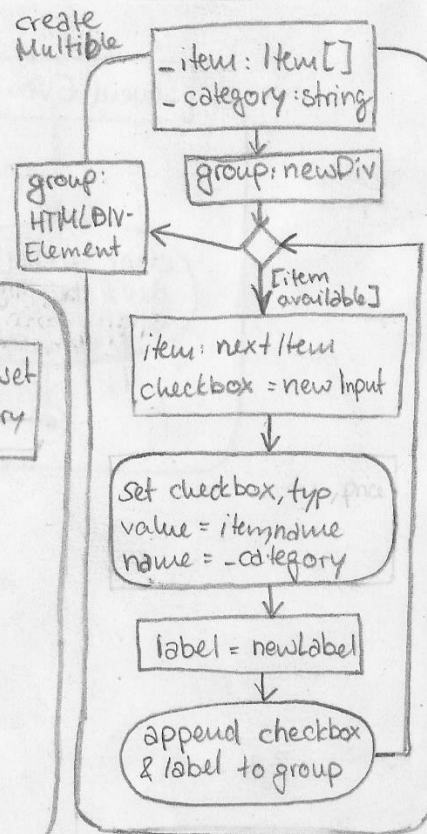 create
Multible
_item: Item[]
_category:string
group:newDiv
group:
HTMLDIV-
Element
[item
available]
item: next Item
checkbox = new Input
set checkbox, typ
value = item,name
name = _category
label = newLabel
append checkbox
& label to group
set